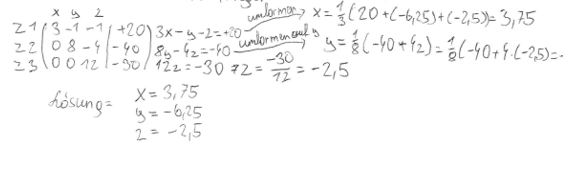 x y z
Z1 (3 -1 -1 | +20) 3x - y - z = +20 umformen → x = 1/3 (20 + (-6,25) + (-2,5)) = 3,75
Z2 (0 8 -4 | -40) 8y - 4z = -40 umformen auf y → y = 1/8 (-40 + 4z) = 1/8 (-40 + 4·(-2,5) =
Z3 (0 0 12 | -30) 12z = -30 → z = -30/12 = -2,5
Lösung = x = 3,75
y = -6,25
z = -2,5